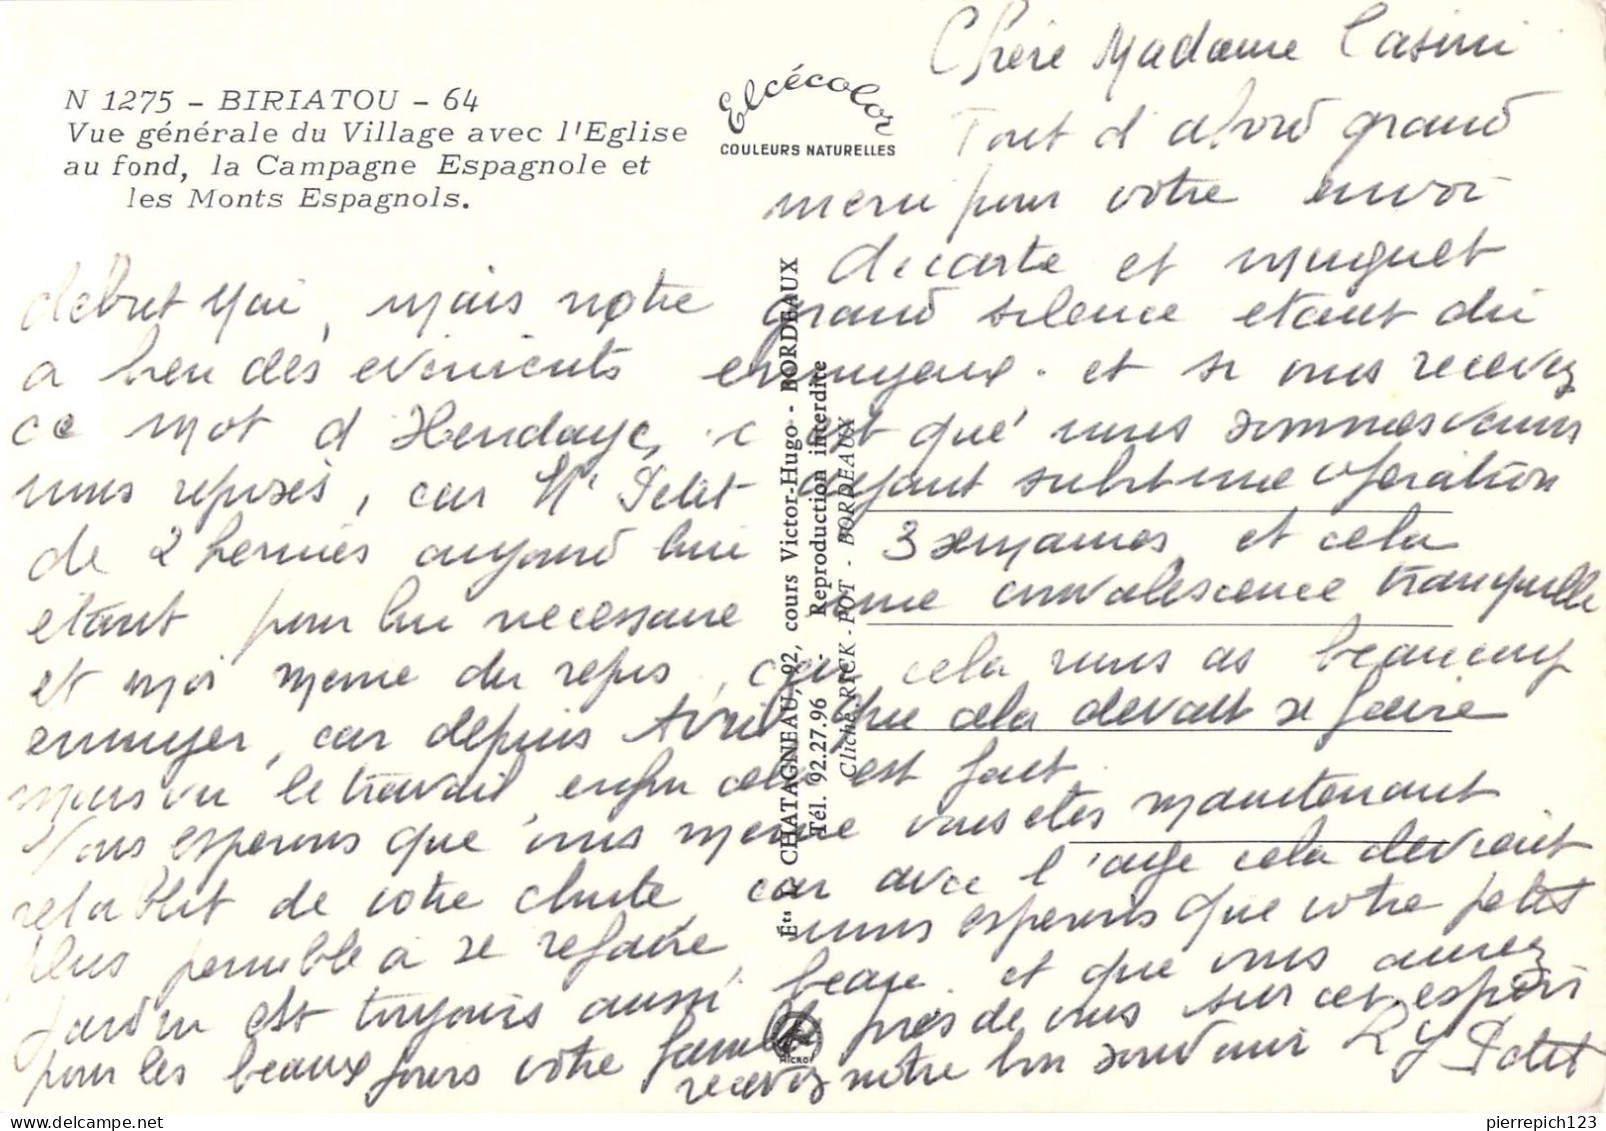 N 1275 - BIRIATOU - 64
Vue générale du Village avec l'Eglise
au fond, la Campagne Espagnole et
les Monts Espagnols.
Elcécolor
COULEURS NATURELLES
Ets CHATAGNEAU, 92, cours Victor-Hugo - BORDEAUX
Tél. 92.27.96 - Reproduction interdite
Cliché RICK-POT - BORDEAUX
Chère Madame Casini
Tout d'abord grand
merci pour votre envoi
de carte et muguet
debut Mai, mais notre grand silence etant du
a bien des evenients ennuyeux. et si vous recevez
ce mot d'Hendaye, c'est que nous sommes venus
nous reposés, car Mr Petit ayant subit une operation
de 2 hernies aujourd hui 3 semaines, et cela
etant pour lui necessaire une convalescence tranquille
et moi meme du repos, car cela nous as beaucoup
ennuyer, car depuis Avril que cela devait se faire
mais vu le travail, enfin cela est fait.
Nous esperons que vous meme vous etes maintenant
retablit de votre chute car avec l'age cela devient
plus penible a se refaire, nous esperons que votre petit
jardin est toujours aussi beau. et que vous aurez
pour les beaux jours votre famille près de vous sur cet espoir
recevez notre bon souvenir R Y Petit
pierrepich123